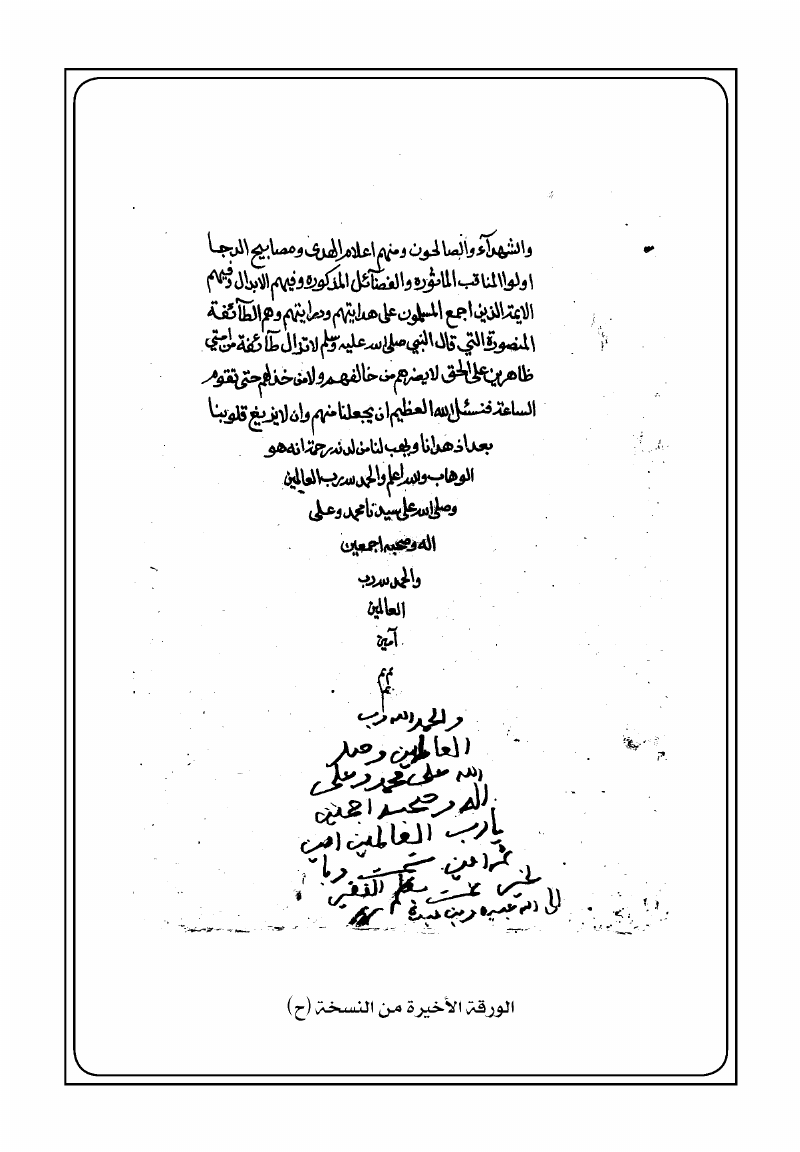 والشهدآء والصالحون ومنهم اعلام الهدى ومصابيح الدجا
اولوا المناقب الماثوره والفضآئل المذكوره وفيهم الابدال وفيهم
الايمة الذين اجمع المسلمون على هدايتهم ودرايتهم وهم الطآئفة
المنصورة التي قال النبي صلى الله عليه وسلم لاتزال طآئفة من امتي
ظاهرين على الحق لايضرهم من خالفهم ولا من خذلهم حتى تقوم
الساعة فنسئل الله العظيم ان يجعلنا منهم وان لايزيغ قلوبنا
بعد اذ هدانا ويهب لنا من لدنه رحمة انه هو
الوهاب والله اعلم والحمد لله رب العالمين
وصلى الله على سيدنا محمد وعلى
اله وصحبه اجمعين
والحمد لله رب
العالمين
آمين
والحمد الله رب
العالمين وصلى
الله على محمد وعلى
اله وصحبه اجمعين
يارب العالمين امين
ثم امين تمت وبا
لخير عمت بقلم الفقير
الى الله
الورقة الأخيرة من النسخة (ح)